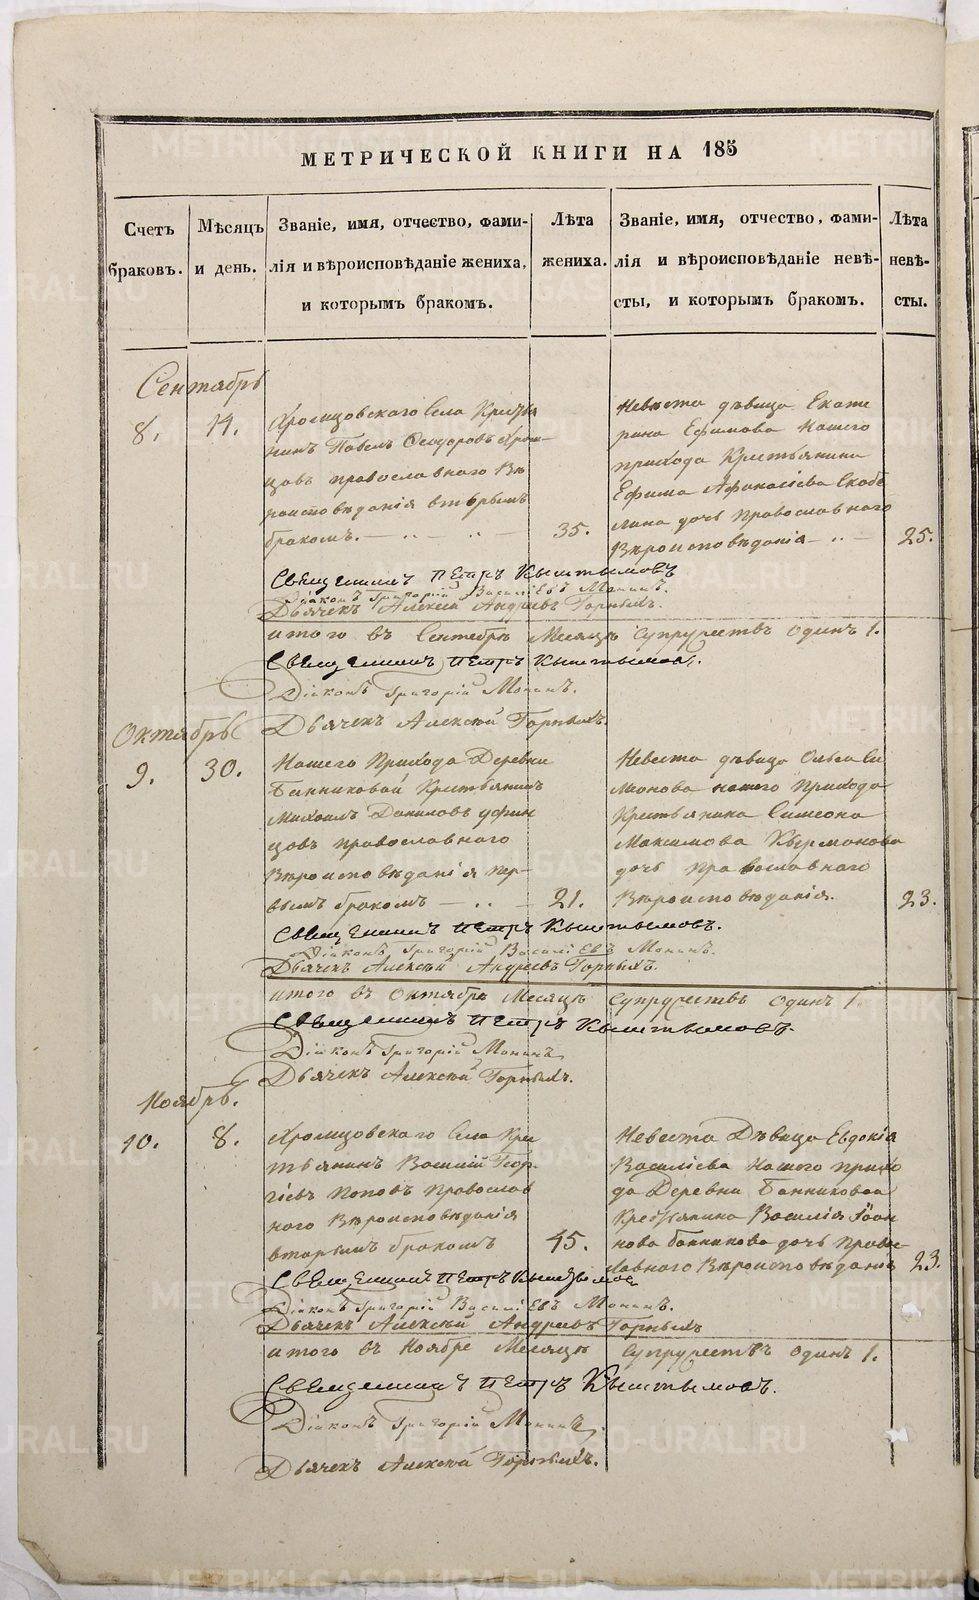 МЕТРИЧЕСКОЙ КНИГИ НА 185
Счетъ браковъ.
Мѣсяцъ и день.
Званіе, имя, отчество, фами-
лія и вѣроисповѣданіе жениха,
и которымъ бракомъ.
Лѣта жениха.
Званіе, имя, отчество, фами-
лія и вѣроисповѣданіе невѣ-
сты, и которымъ бракомъ.
Лѣта невѣ-
сты.
Сентябрь
8. 14.
Хромцовскаго Села Крестья
нинъ Павелъ Ѳеодоровъ Хром-
цовъ православнаго Вѣ
роисповѣданія вторымъ
бракомъ.
35.
Невеста дѣвица Екате
рина Ефимова Нашего
прихода Крестьянина
Ефима Афанасіева
дочь Православнаго
Вѣроисповѣданія
25.
Священникъ Петръ Кыштымовъ
Діаконъ Григорій Василіевъ Монинъ.
Дьячекъ Алексѣй Андреевъ Горныхъ.
итого въ Сентябрѣ Месяцѣ Супружествъ одинъ 1.
Священникъ Петръ Кыштымовъ.
Діаконъ Григорій Монинъ.
Дьячекъ Алексѣй Горныхъ.
Октябрь
9. 30.
Нашего Прихода Деревни
Банниковой Крестьянинъ
Михаилъ Даниловъ Уфин
цовъ православнаго
Вѣроисповѣданія пер-
вымъ бракомъ
21.
Невеста дѣвица Ольга Си
меонова нашего Прихода
Крестьянина Симеона
Максимова
дочь православнаго
Вѣроисповѣданія.
23.
Священникъ Петръ Кыштымовъ.
Діаконъ Григорій Василіевъ Монинъ.
Дьячекъ Алексѣй Андреевъ Горныхъ.
итого въ Октябрѣ Месяцѣ Супружествъ одинъ 1.
Священникъ Петръ Кыштымовъ.
Діаконъ Григорій Монинъ
Дьячекъ Алексѣй Горныхъ.
Ноябрь.
10. 8.
Хромцовскаго Села Крес
тьянинъ Василій Геор-
гіевъ Поповъ Православ
наго Вѣроисповѣданія
вторымъ бракомъ
45.
Невеста Дѣвица Евдокія
Василіева Нашего прихо
да Деревни Банниковой
Крестьянина Василія Іоан
нова Банникова дочь Право-
славнаго Вѣроисповѣданія
23.
Священникъ Петръ Кыштымовъ
Діаконъ Григорій Василіевъ Монинъ.
Дьячекъ Алексѣй Андреевъ Горныхъ
итого въ Ноябре Месяцѣ Супружествъ одинъ 1.
Священникъ Петръ Кыштымовъ.
Діаконъ Григорій Монинъ.
Дьячекъ Алексѣй Горныхъ.
METRIKI.GASO-URAL.RU